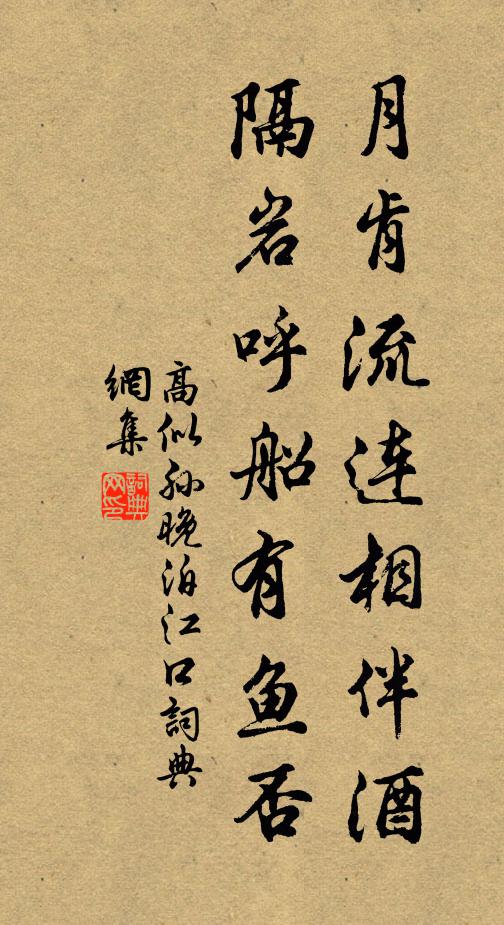 月肯流连相伴酒
隔岩呼船有鱼否
高似孙晚泊江口詞典
網集
詞典
网印